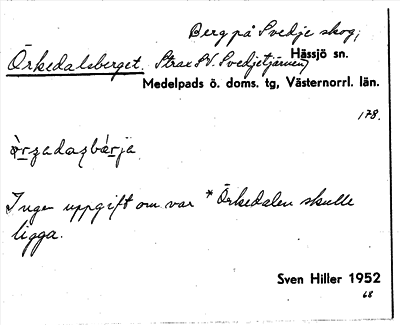 Berg på Svedje skog,
Örkedalsberget. Strax S.V. Svedjetjärnen,
Hässjö sn.
Medelpads ö. doms. tg, Västernorrl. län.
178.
Ingen uppgift om var *Örkedalen skulle
ligga.
Sven Hiller 1952
68